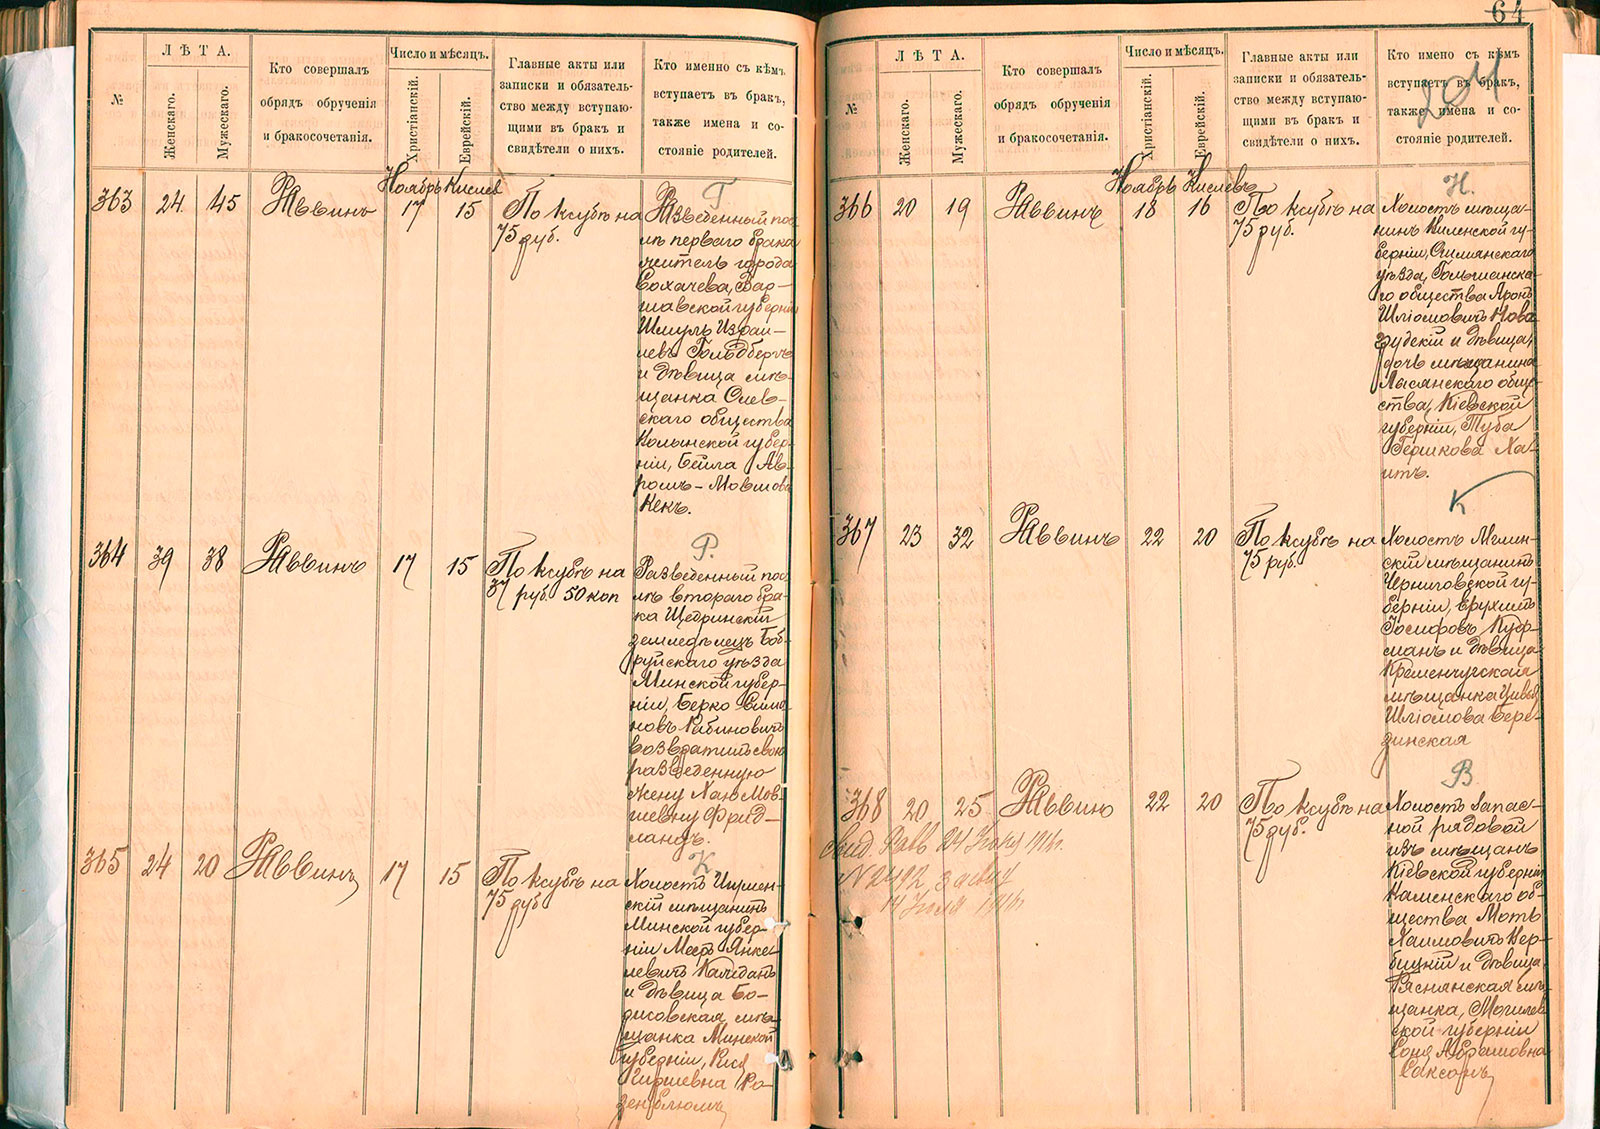 №
ЛѢТА.
Женскаго.
Мужескаго.
Кто совершалъ
обрядъ обрученія
и бракосочетанія.
Число и мѣсяцъ.
Христіанскій.
Еврейскій.
Главные акты или
записки и обязатель-
ство между вступаю-
щими въ бракъ и
свидѣтели о нихъ.
Кто именно съ кѣмъ
вступаетъ въ бракъ,
также имена и со-
стояніе родителей.
Ноябрь Кислевъ
363 24 45 Раввинъ 17 15
По ксубѣ на
75 руб.
Г.
Разведенный пос-
лѣ перваго брака
житель города
Сохачева, Вар-
шавской губерніи
Шмуль Израи-
левъ Гольдбергъ
и дѣвица мѣ-
щанка
скаго общества
Волынской губер-
ніи, Бейла Ав-
ромъ-Мовшова
Кекъ.
364 39 38 Раввинъ 17 15
По ксубѣ на
37 руб. 50 коп
Р.
Разведенный пос-
лѣ втораго бра-
ка Щедринскій
земледѣлецъ Боб-
руйскаго уѣзда
Минской губер-
ніи, Берко Симо-
новъ Рабиновичъ
возвратилъ свою
разведенную
жену Хаю Мов-
шевну Фрид-
ландъ.
365 24 20 Раввинъ 17 15
По ксубѣ на
75 руб
К
Холостъ Игумен-
скій мѣщанинъ
Минской губер-
ніи Мееръ Янке-
левичъ
и дѣвица Бо-
рисовская мѣ-
щанка Минской
губерніи,
Гиршевна Ро-
зенблюмъ
64
№
ЛѢТА.
Женскаго.
Мужескаго.
Кто совершалъ
обрядъ обрученія
и бракосочетанія.
Число и мѣсяцъ.
Христіанскій.
Еврейскій.
Главные акты или
записки и обязатель-
ство между вступаю-
щими въ бракъ и
свидѣтели о нихъ.
Кто имено съ кѣмъ
вступаетъ въ бракъ,
также имена и со-
стояніе родителей.
Ноябрь Кислевъ
366 20 19 Раввинъ 18 16
По ксубѣ на
75 руб.
Н.
Холостъ мѣща-
нинъ Виленской гу-
берніи, Ошмянскаго
уѣзда, Гольшанска-
го общества Аронъ
Шліомовичъ Нова-
грудскій и дѣвица,
дочь мѣщанина
Лысянскаго обще-
ства, Кіевской
губерніи, Туба
Гершкова Ха-
итъ.
367 23 32 Раввинъ 22 20
По ксубѣ на
75 руб.
К
Холостъ Мглин-
скій мѣщанинъ
Черниговской гу-
берніи, Ерухимъ
Іосифовъ Куф-
манъ и дѣвица
Кременчугская
мѣщанка Цивья
Шліомова Бере-
зинская
368 20 25 Раввинъ 22 20
По ксубѣ на
75 руб.
В
Холостъ запас-
ной рядовой
изъ мѣщанъ
Кіевской губерніи
Каменскаго об-
щества Мотъ
Хаимовичъ Вер-
бицкій и дѣвица,
Ряснянская мѣ-
щанка, Могилев-
ской губерніи
Соня Абрамовна
Саксонъ
24 1916 г.
N 2492
14 Іюля 1916